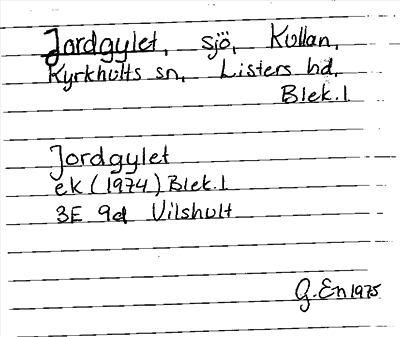 Jordgylet, sjö, Kullan,
Kyrkhults sn, Listers hd,
Blek. l
Jordgylet
ek (1974) Blek. l
3E 9d Vilshult
G. En 1975